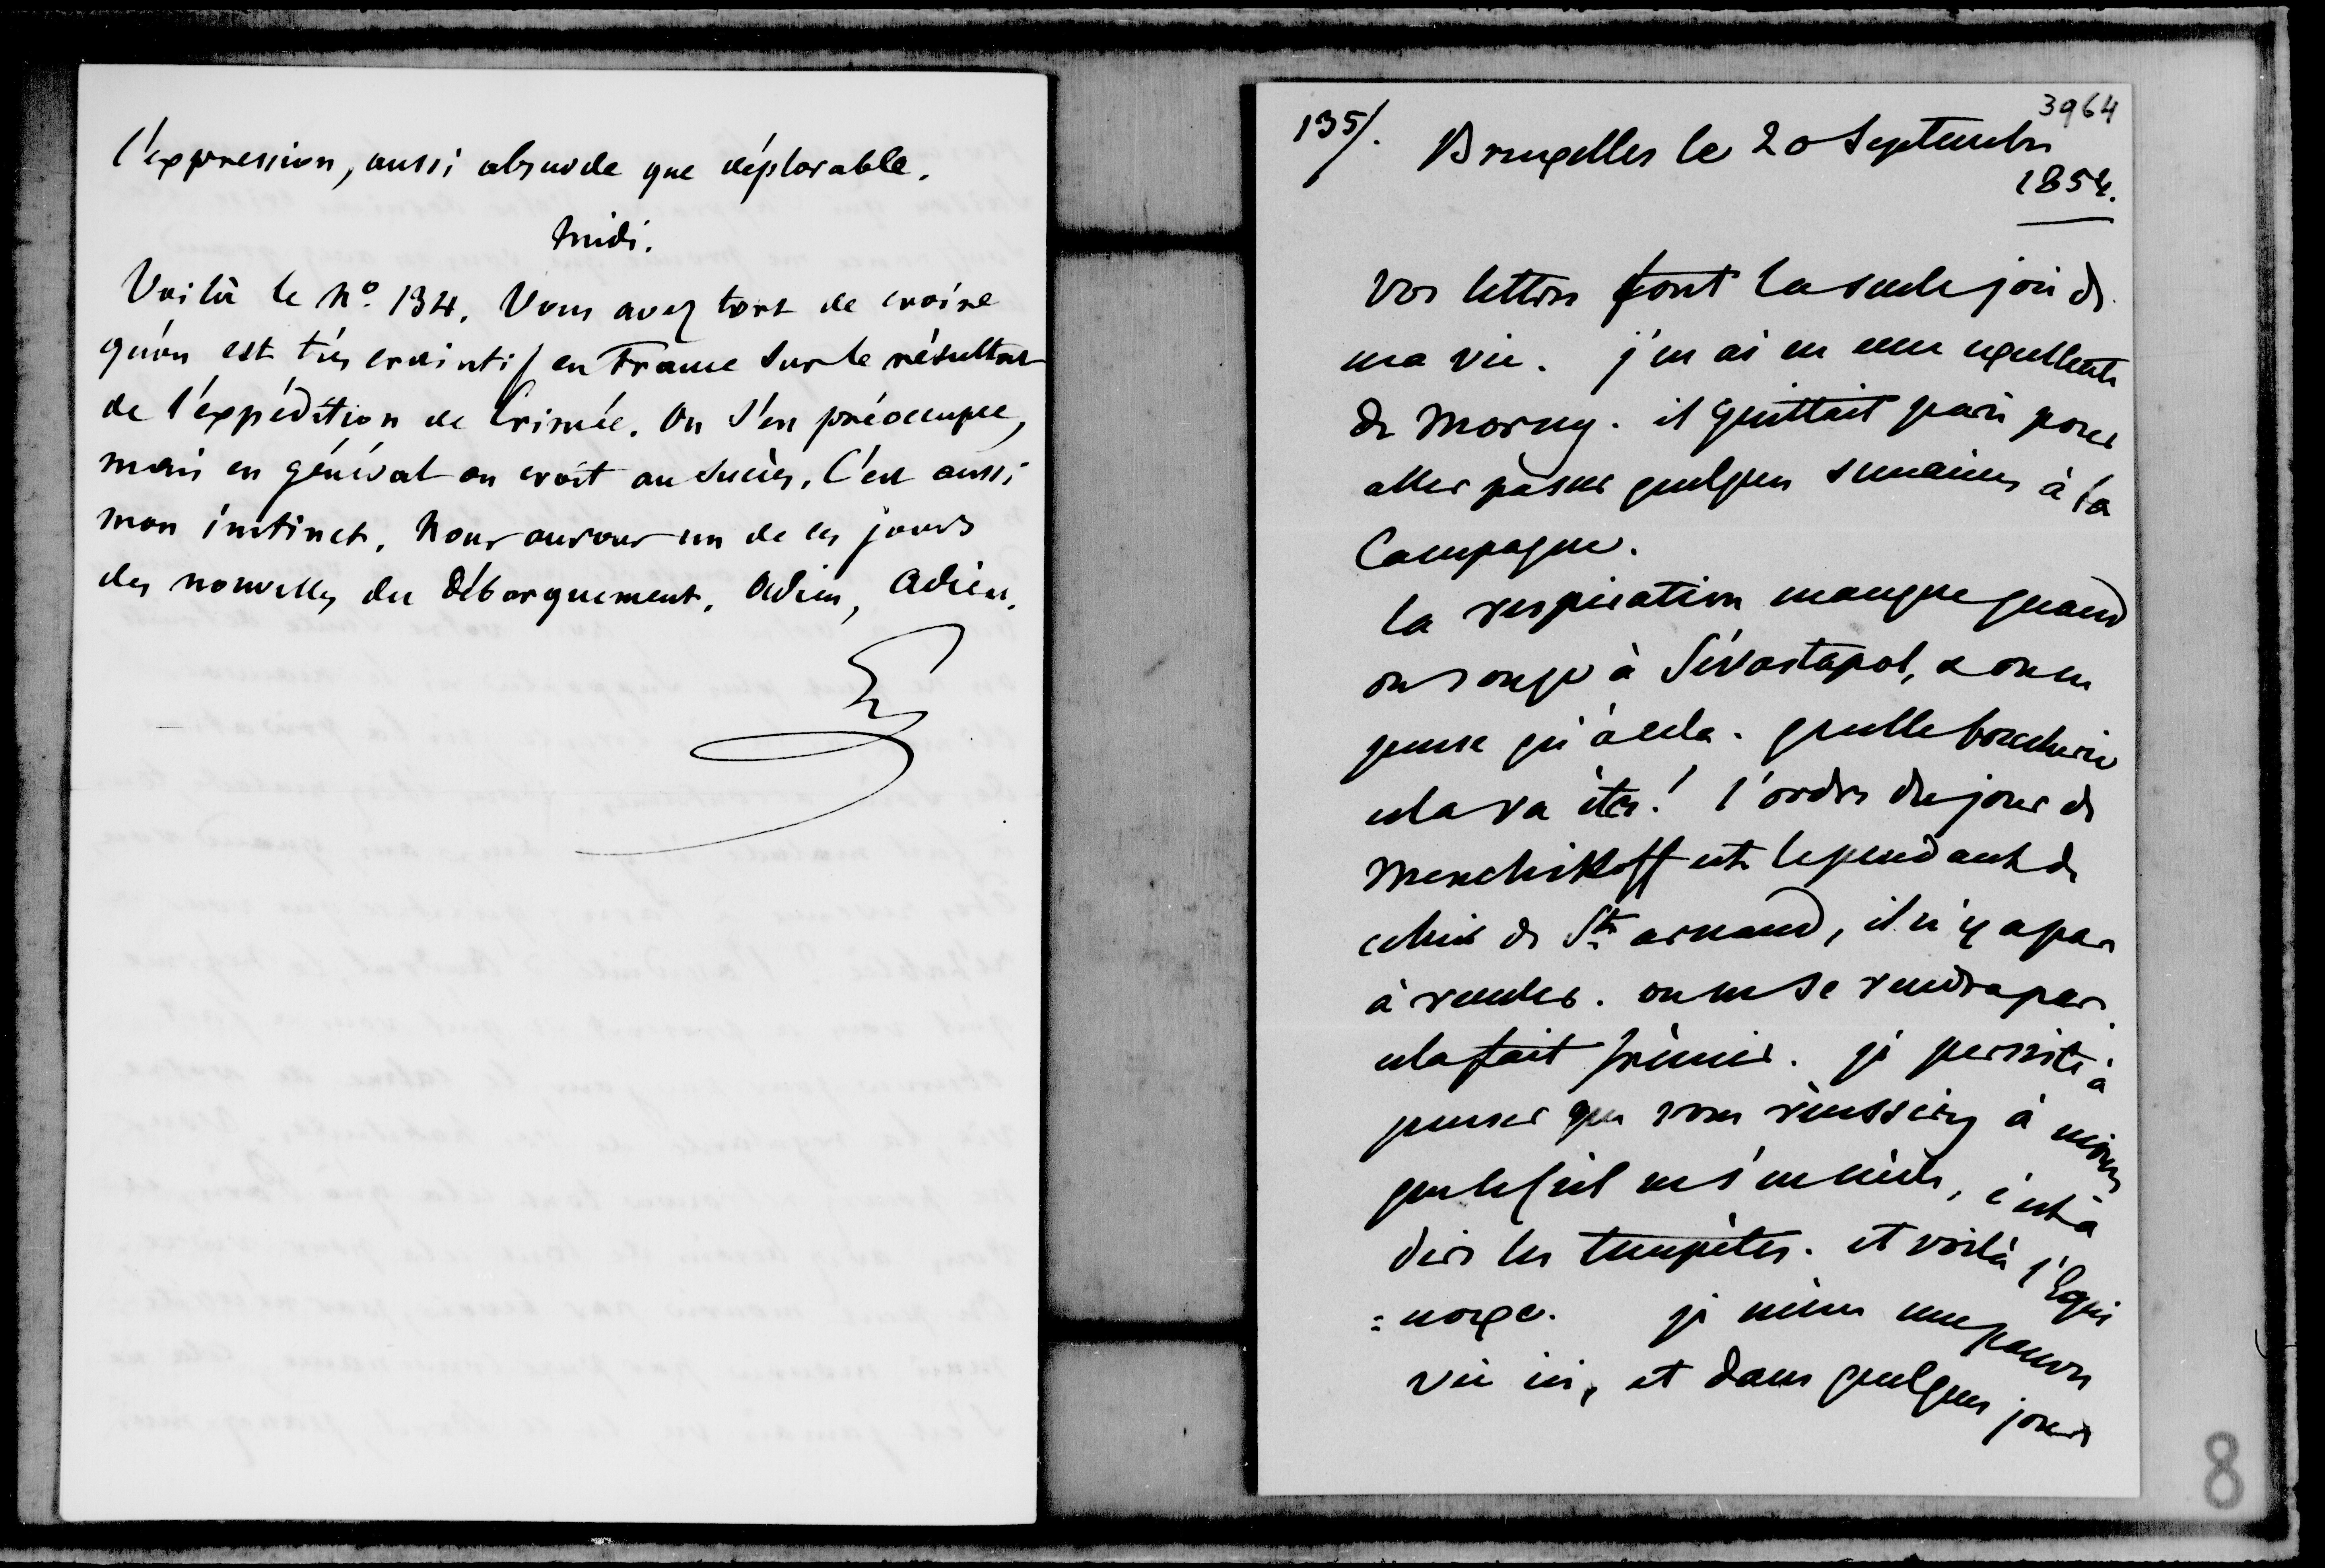 l'expression, aussi absurde que déplorable.
Midi.
Voilà le No. 134. Vous avez tort de croire
qu'on est très craintif en France sur le résultat
de l'expédition de Crimée. On s'en préoccupe,
mais en général on croit au succès. C'est aussi
mon instinct. Nous aurons un de ces jours
des nouvelles du débarquement. Adieu, Adieu.
3964
135/. Bruxelles le 20 Septembre
1854.
vos lettres font la seule joie de
ma vie. j'en ai eu une excellente
de Morny. il quittait paris pour
aller passer quelques semaines à la
Campagne.
la respiration manque quand
on songe à Sévastopol, & on ne
pense qu'à cela. quelle boucherie
cela va être! l'ordre du jour de
Menchikoff est le pendant de
celui de St. arnaud, il n'y a pas
à reculer. on ne se rendra pas.
cela fait frémir. je persiste à
penser que vous réussirez à moins
que le ciel ne s'en mêle, c'est à
dire les tempêtes. et voilà l'Equi
=noxe. je mène une pauvre
vie ici, et dans quelques jours
8